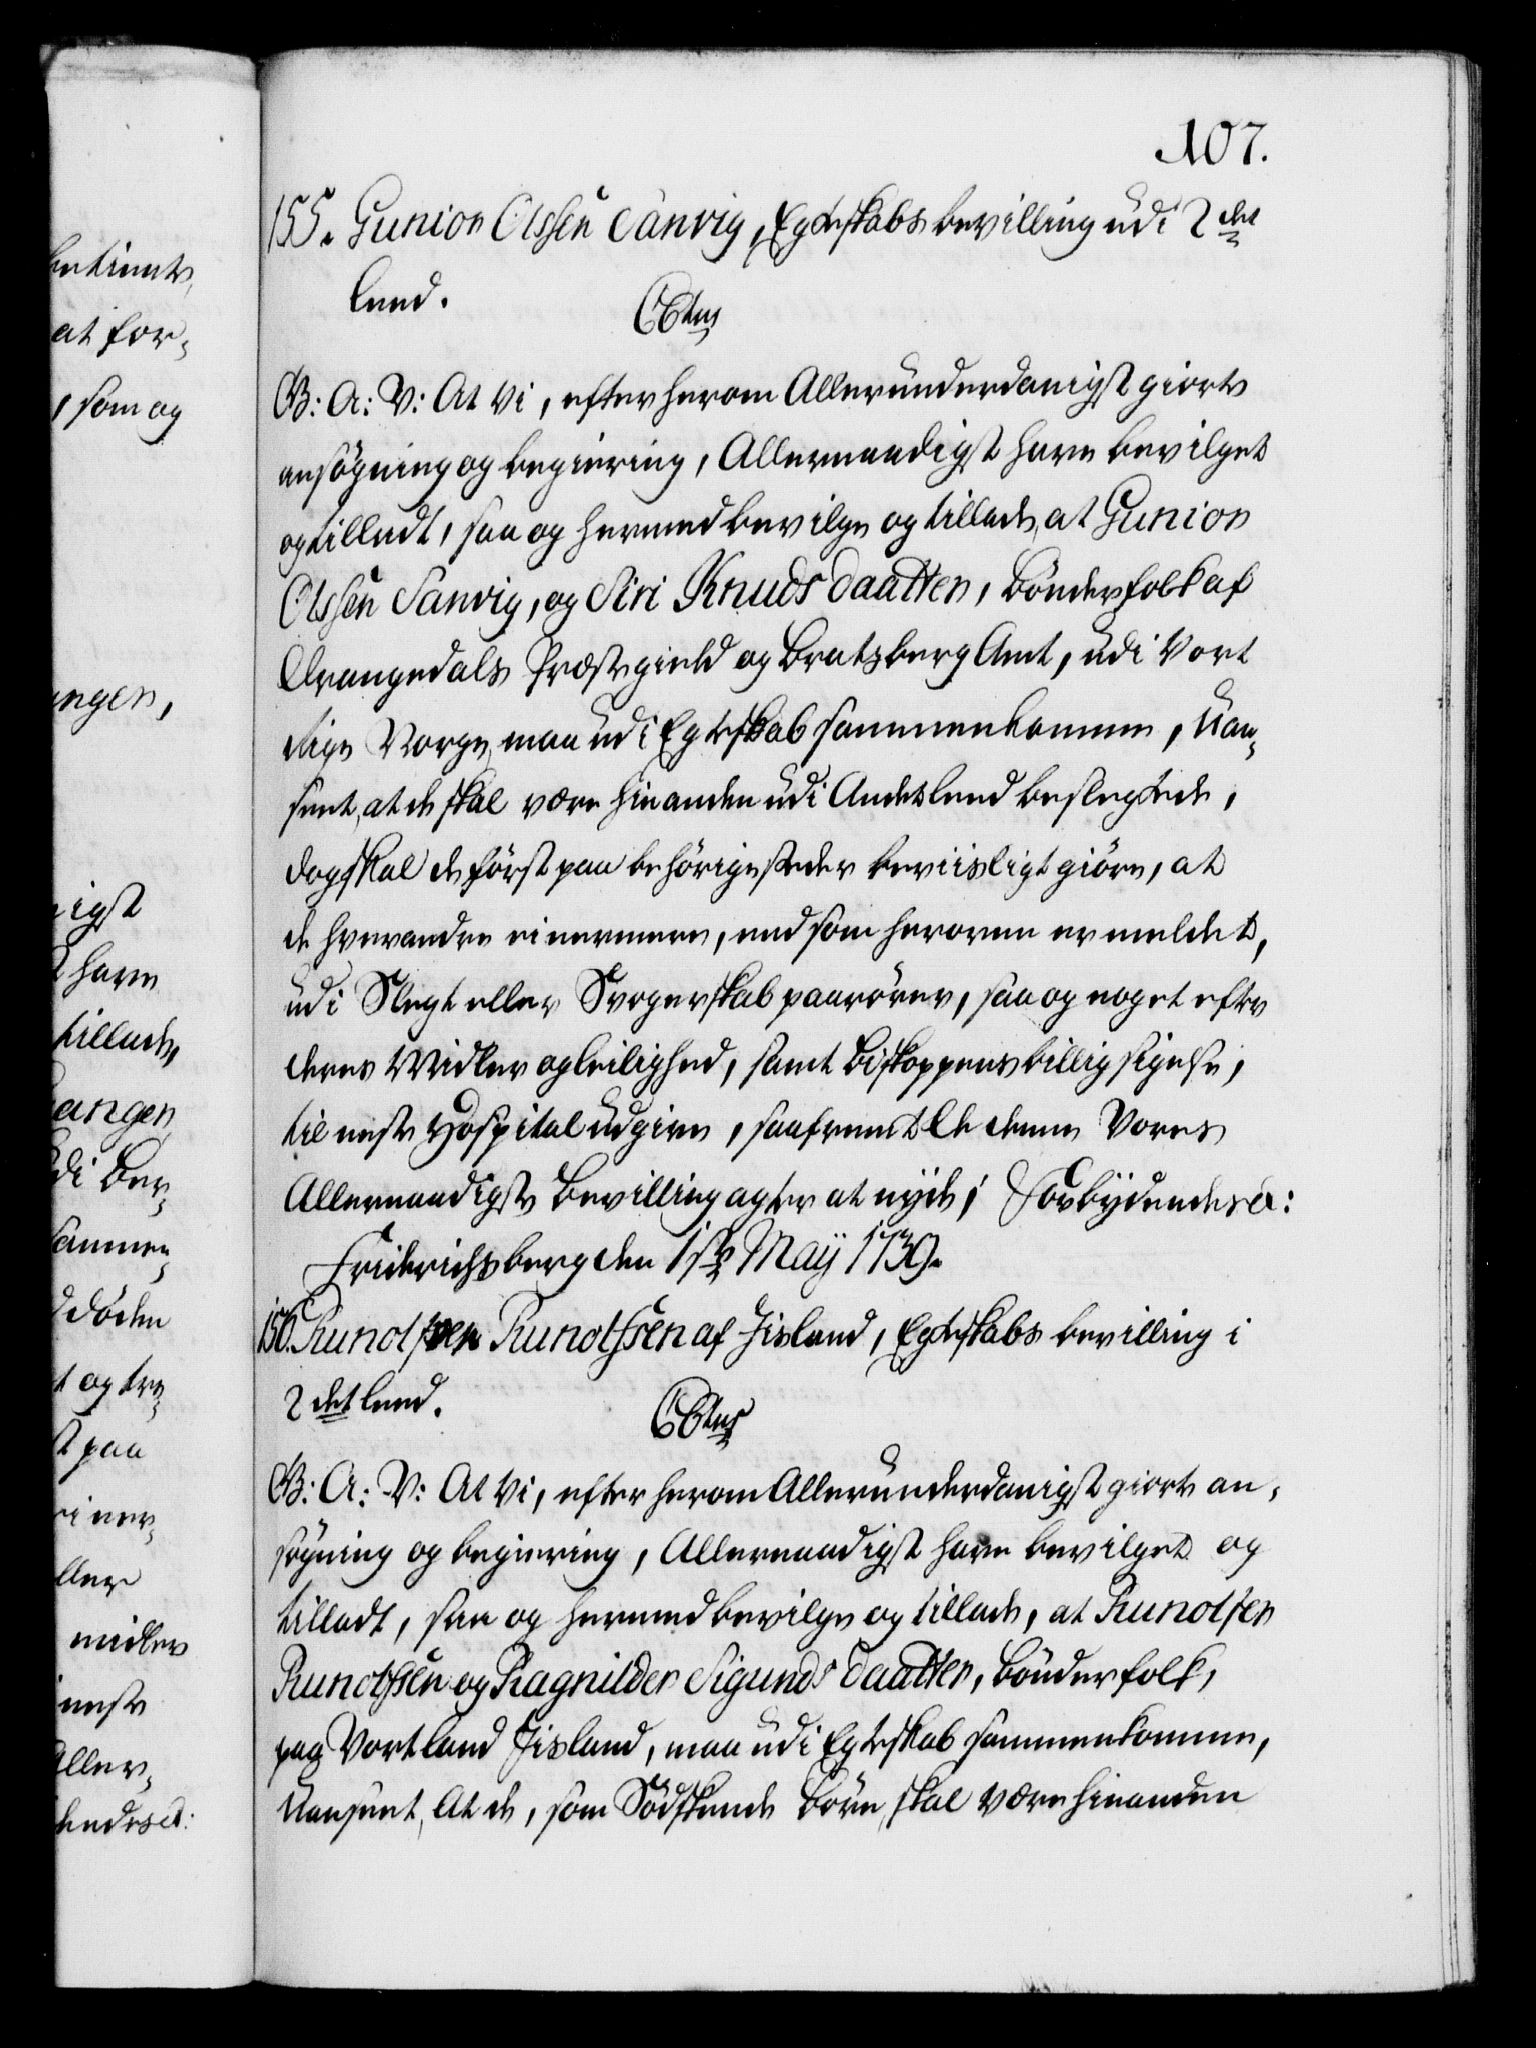 107.
155. Gunior Olssen Sanvig, Egteskabs bevilling udi 2det
Leed.
C6tus
G: A: V: At Vi, efter herom Allerunderdanigst giorte
ansögning og begiering, Allernaadigst have bevilget
og tilladt, saa og hermed bevilge og tillade, at Gunior
Olssen Sanvig, og Siri Knuds daatter, bönderfolk af
Drangedals Præstegield og Bratsberg Amt, udi Vort
Rige Norge, maa udi Egteskab sammenkomme, Uan-
seet, at de skal være hinanden udi Andet leed beslegtede,
dog skal de först paa behörige steder beviisligt giöre, at
de hverandre ei nermere, end som heroven er meldet,
udi Slegt eller Svogerskab paarörer, saa og noget efter
deres Midler og leilighed, samt Biskoppens billig sigelse,
til neste Hospital udgive, saafremt de denne Vores
Allernaadigste Bevilling agter at nyde; Forbydendes &:
Friderichsberg den 1ste Maÿ 1739.
156. Runolfver Runolfsen af Iisland, Egteskabs bevilling i
2det leed.
C6tus
G: A: V: At Vi, efter herom Allerunderdanigst giorte an-
sögning og begiering, Allernaadigst have bevilget og
tilladt, saa og hermed bevilge og tillade, at Runolfer
Runolfsen og Ragnilder Sigunds daatter, bönder folk,
paa Vort land Iisland, maa udi Egteskab sammenkomme,
Uanseet, At de, som Södskende Börn, skal være hinanden